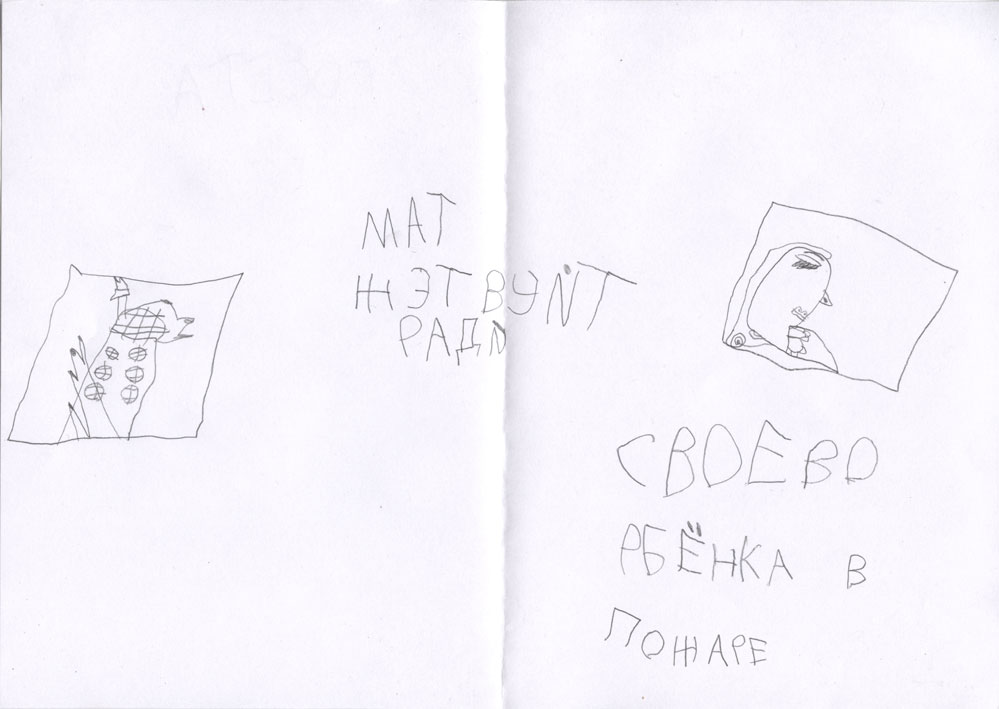 МАТ
ЖЭТВУЙТ
РАДИ
СВОЕВО
РБЁНКА В
ПОЖАРЕ